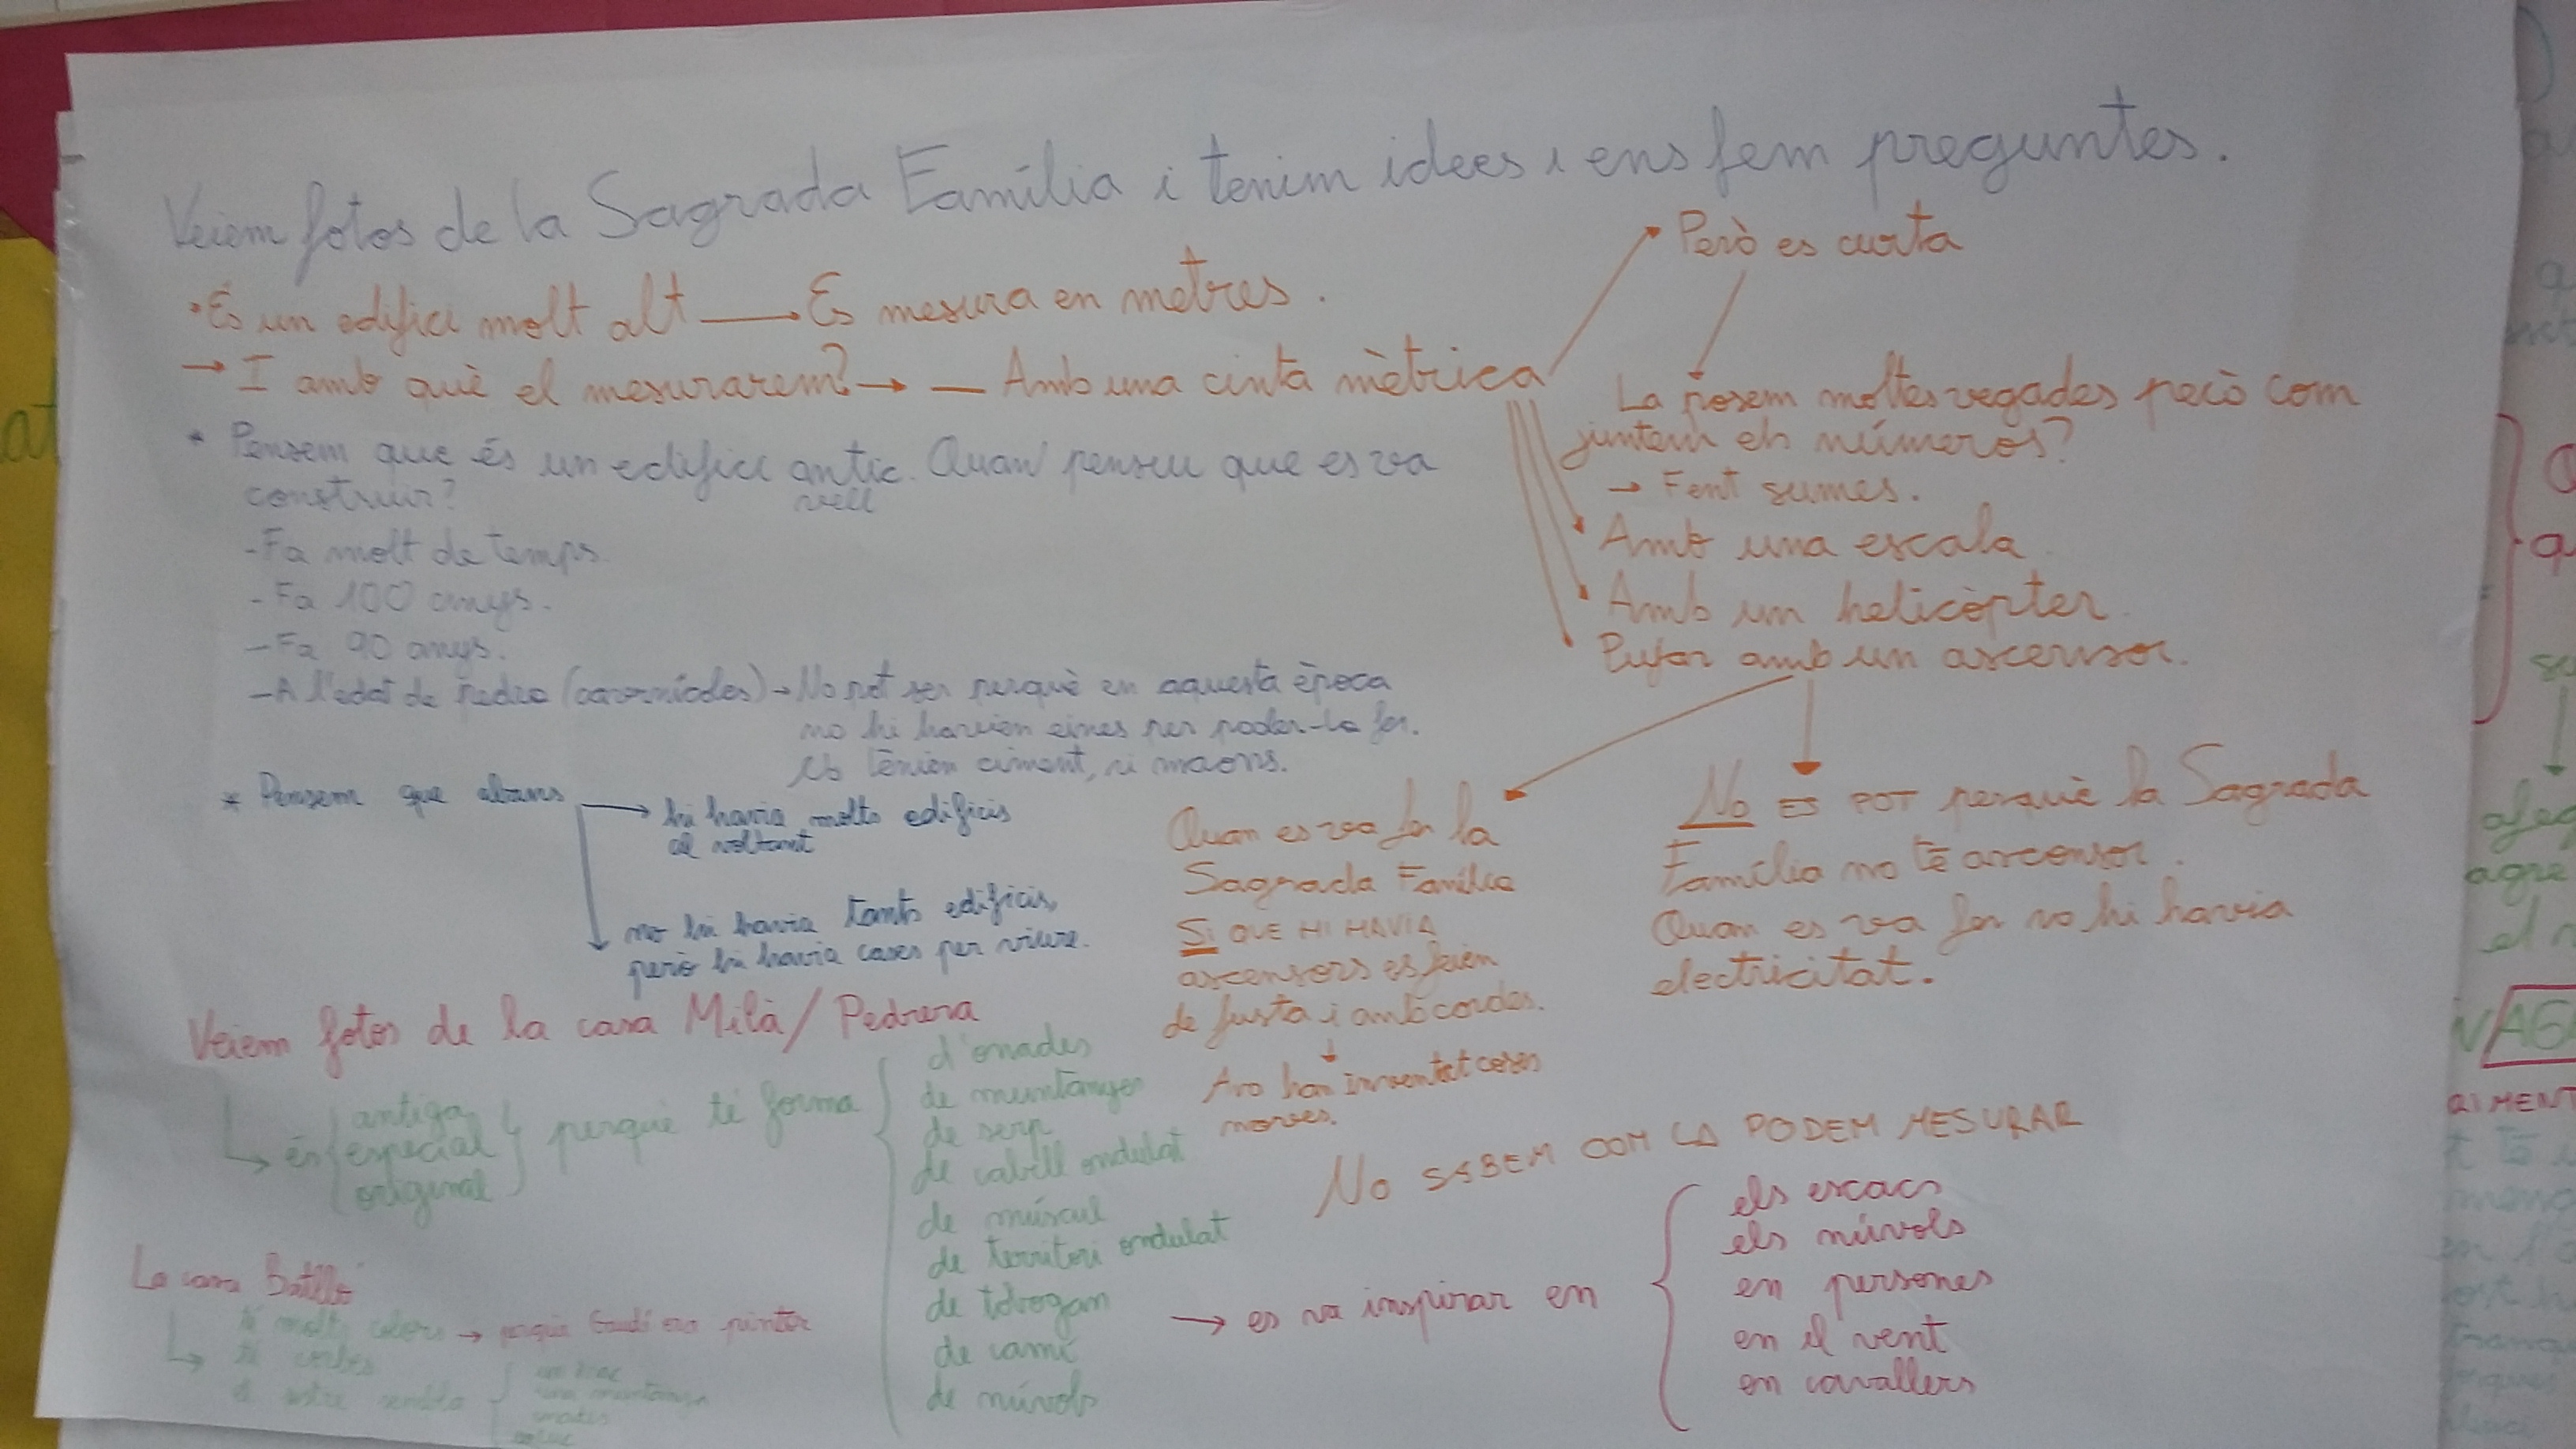 Veiem fotos de la Sagrada Família i tenim idees i ens fem preguntes.
• És un edifici molt alt — Es mesura en metres.
→ I amb què el mesurarem? → — Amb una cinta mètrica
Però es curta
La posem moltes vegades però com
juntem els números?
→ Fent sumes.
Amb una escala
Amb un helicòpter.
Pujar amb un ascensor.
* Pensem que és un edifici antic. Quan penseu que es va
vell
construir?
- Fa molt de temps.
- Fa 100 anys.
- Fa 90 anys.
- A l'edat de pedra (cavernícoles) → No pot ser perquè en aquesta època
no hi havien eines per poder-la fer.
tenien ciment, ni maons.
* Pensem que abans → hi havia molts edificis
al voltant
no hi havia tants edificis,
però hi havia cases per viure.
Quan es va fer la
Sagrada Família
SI QUE HI HAVIA
ascensors es feien
de fusta i amb cordes.
Ara han inventat coses
noves.
No ES POT perquè la Sagrada
Família no té ascensor.
Quan es va fer no hi havia
electricitat.
NO SABEM COM LA PODEM MESURAR
Veiem fotos de la casa Milà / Pedrera
és
antiga
especial
original
perquè té forma
d'onades
de muntanyes
de serp
de cabell ondulat
de múscul
de territori ondulat
de tobogan
de camí
de núvols
→ es va inspirar en
els escacs
els núvols
en persones
en el vent
en cavallers
La casa Batlló
té molts colors → perquè Gaudí era pintor